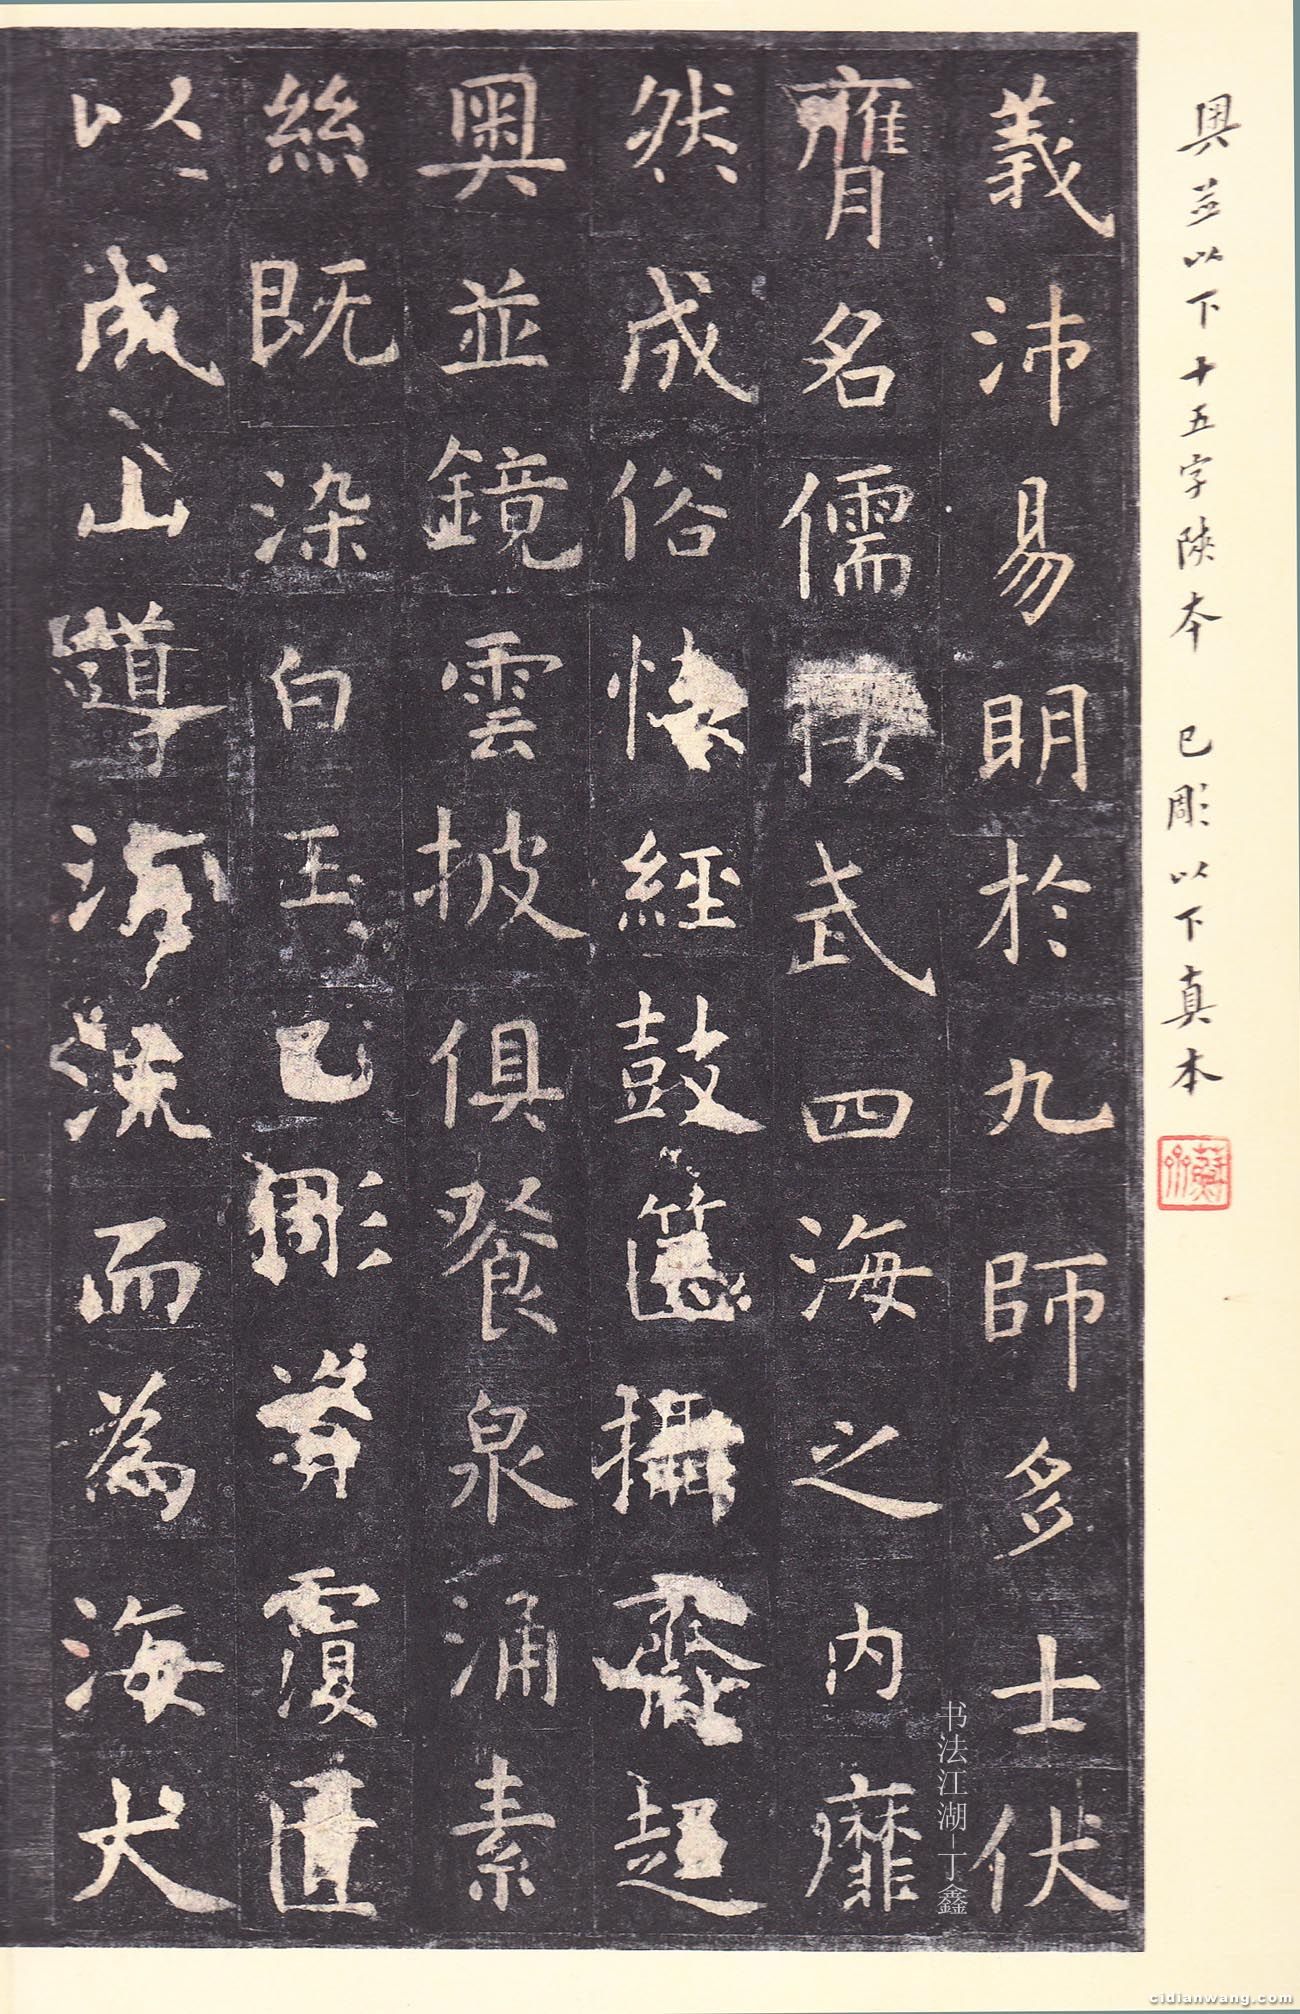 奥並以下十五字陝本　已彫以下真本
義沛易明於九師多士伏
膺名儒接武四海之内靡
然成俗懷經鼓篋攝齋趨
奥並鏡雲披俱餐泉涌素
絲既染白玉已彫資覆匱
以成山導涓流而為海大
书法江湖—丁鑫
cidianwang.com